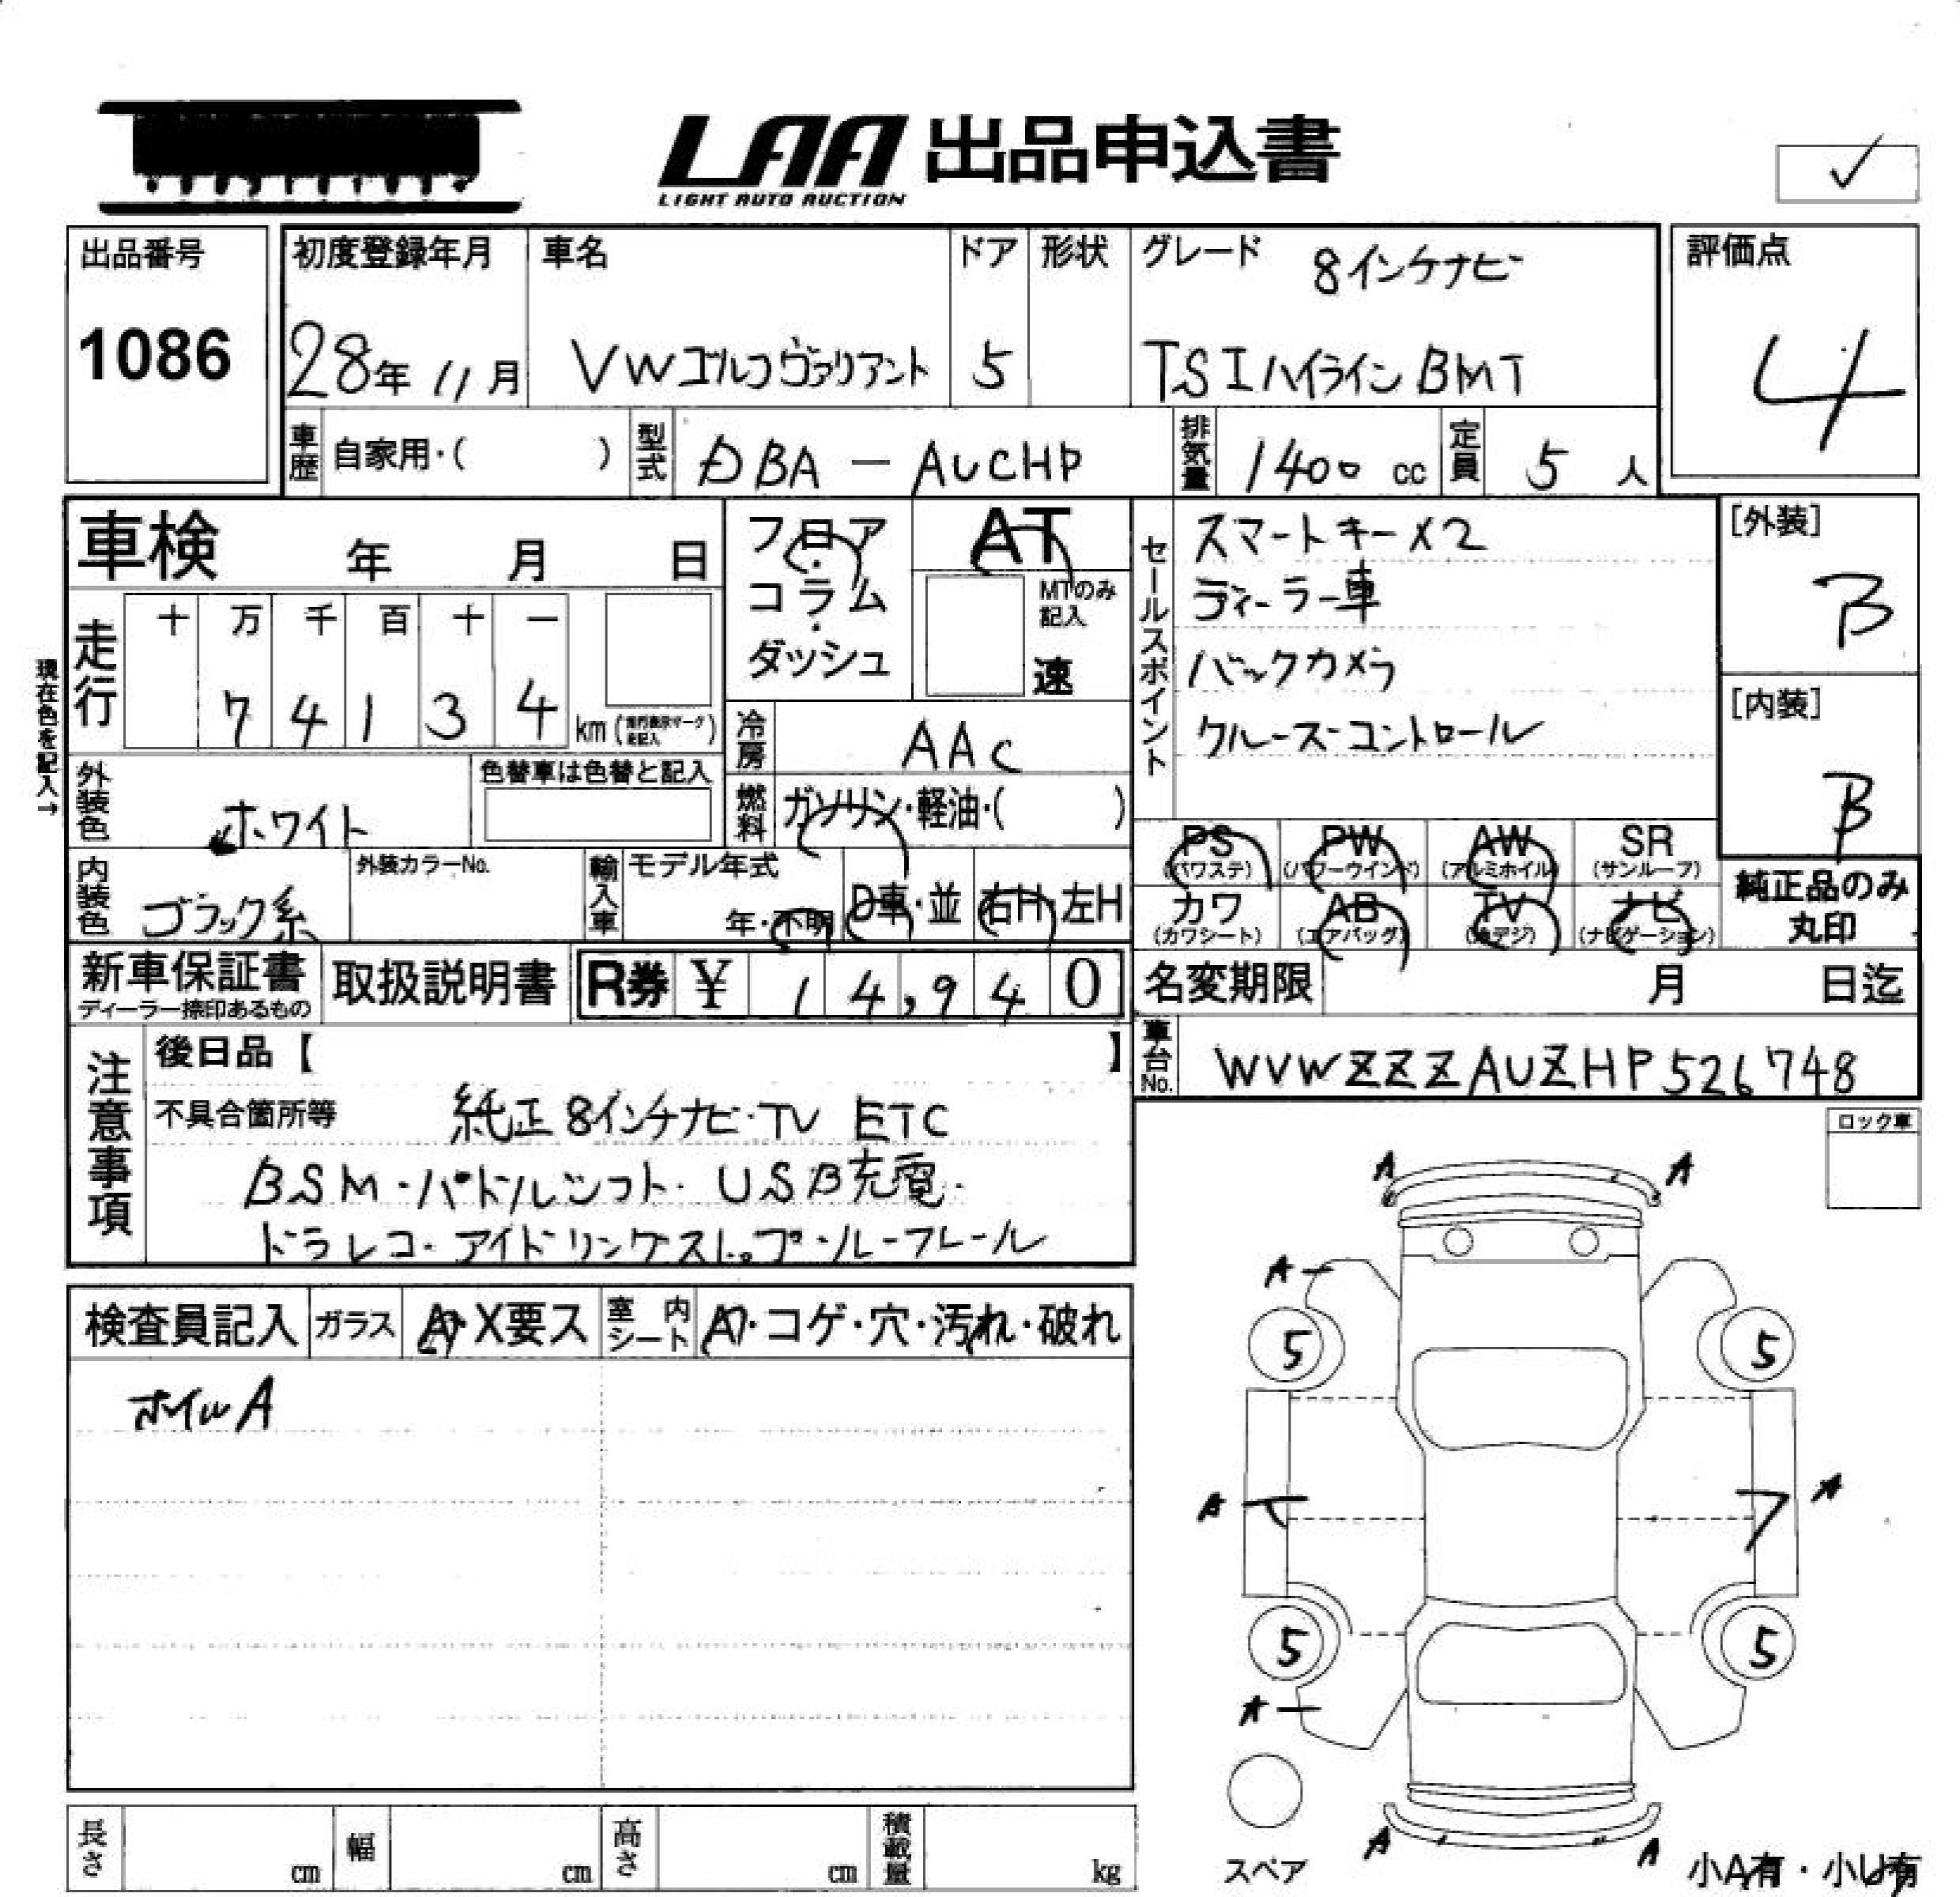 LAA 出品申込書
LIGHT AUTO AUCTION
✓
出品番号
1086
初度登録年月
28年 11月
車名
VWゴルフヴァリアント
ドア
5
形状
グレード
8インチナビ
TSIハイラインBMT
評価点
4
車歴 自家用・( )
型式 DBA - AUCHP
排気量 1400 cc
定員 5 人
車検 年 月 日
フロア・コラム・ダッシュ
AT
MTのみ記入
速
セールスポイント
スマートキー×2
ディーラー車
バックカメラ
クルーズコントロール
[外装]
B
[内装]
B
現在色を記入→
走行
十 万 千 百 十 一
7 4 1 3 4 km
冷房 AAC
外装色 ホワイト
色替車は色替と記入
燃料 ガソリン・軽油・( )
PS (パワステ)
PW (パワーウインド)
AW (アルミホイル)
SR (サンルーフ)
カワ (カワシート)
AB (エアバッグ)
TV (地デジ)
ナビ (ナビゲーション)
純正品のみ
丸印
内装色 ブラック系
外装カラーNo.
輸入車 モデル年式
年・不明
D車・並
右H・左H
新車保証書
ディーラー捺印あるもの
取扱説明書
R券 ¥ 14,940
名変期限 月 日迄
車台No. WVWZZZAUZHP526748
注意事項
後日品【 】
不具合箇所等 純正8インチナビ・TV ETC
BSM・パドルシフト・USB充電・
ドラレコ・アイドリングストップ・ルーフレール
ロック車
検査員記入
ガラス A・X要ス
室内シート A・コゲ・穴・汚れ・破れ
ホイルA
A A
A
5 5
A A
5 5
A
A A
スペア
小A有・小U有
長さ cm
幅 cm
高さ cm
積載量 kg